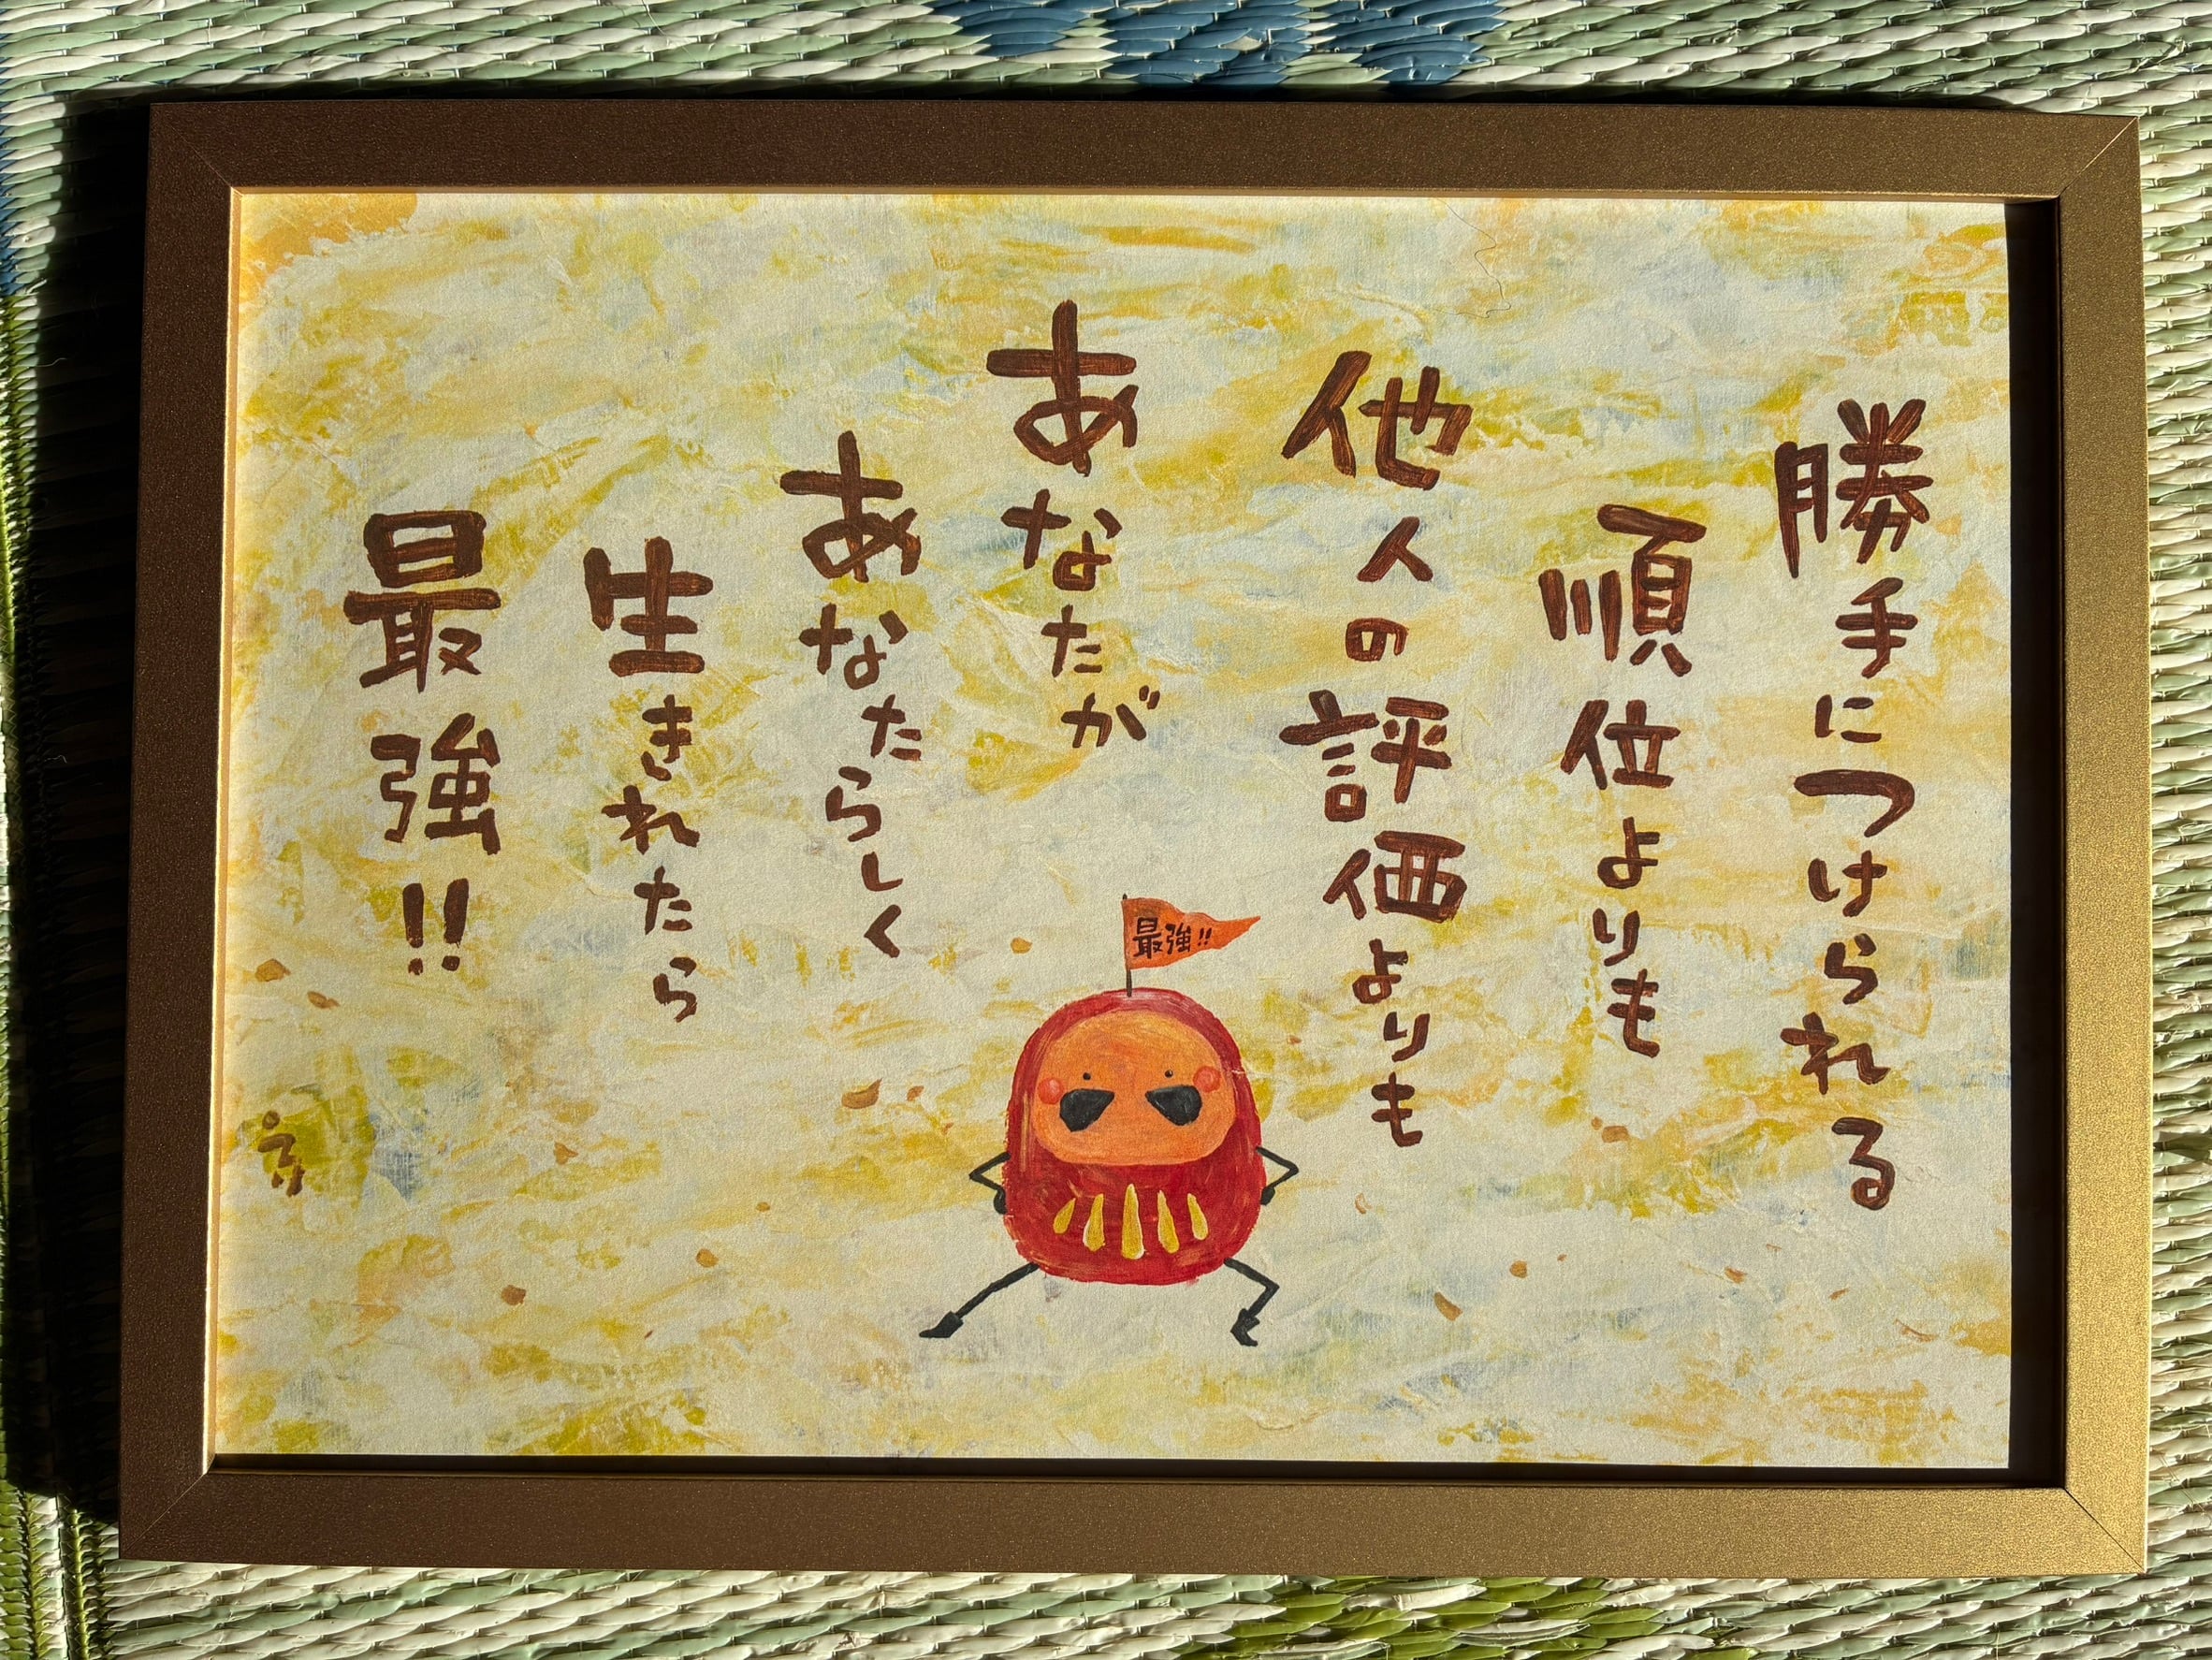 勝手につけられる
順位よりも
他人の評価よりも
あなたが
あなたらしく
生きれたら
最強!!
最強!!